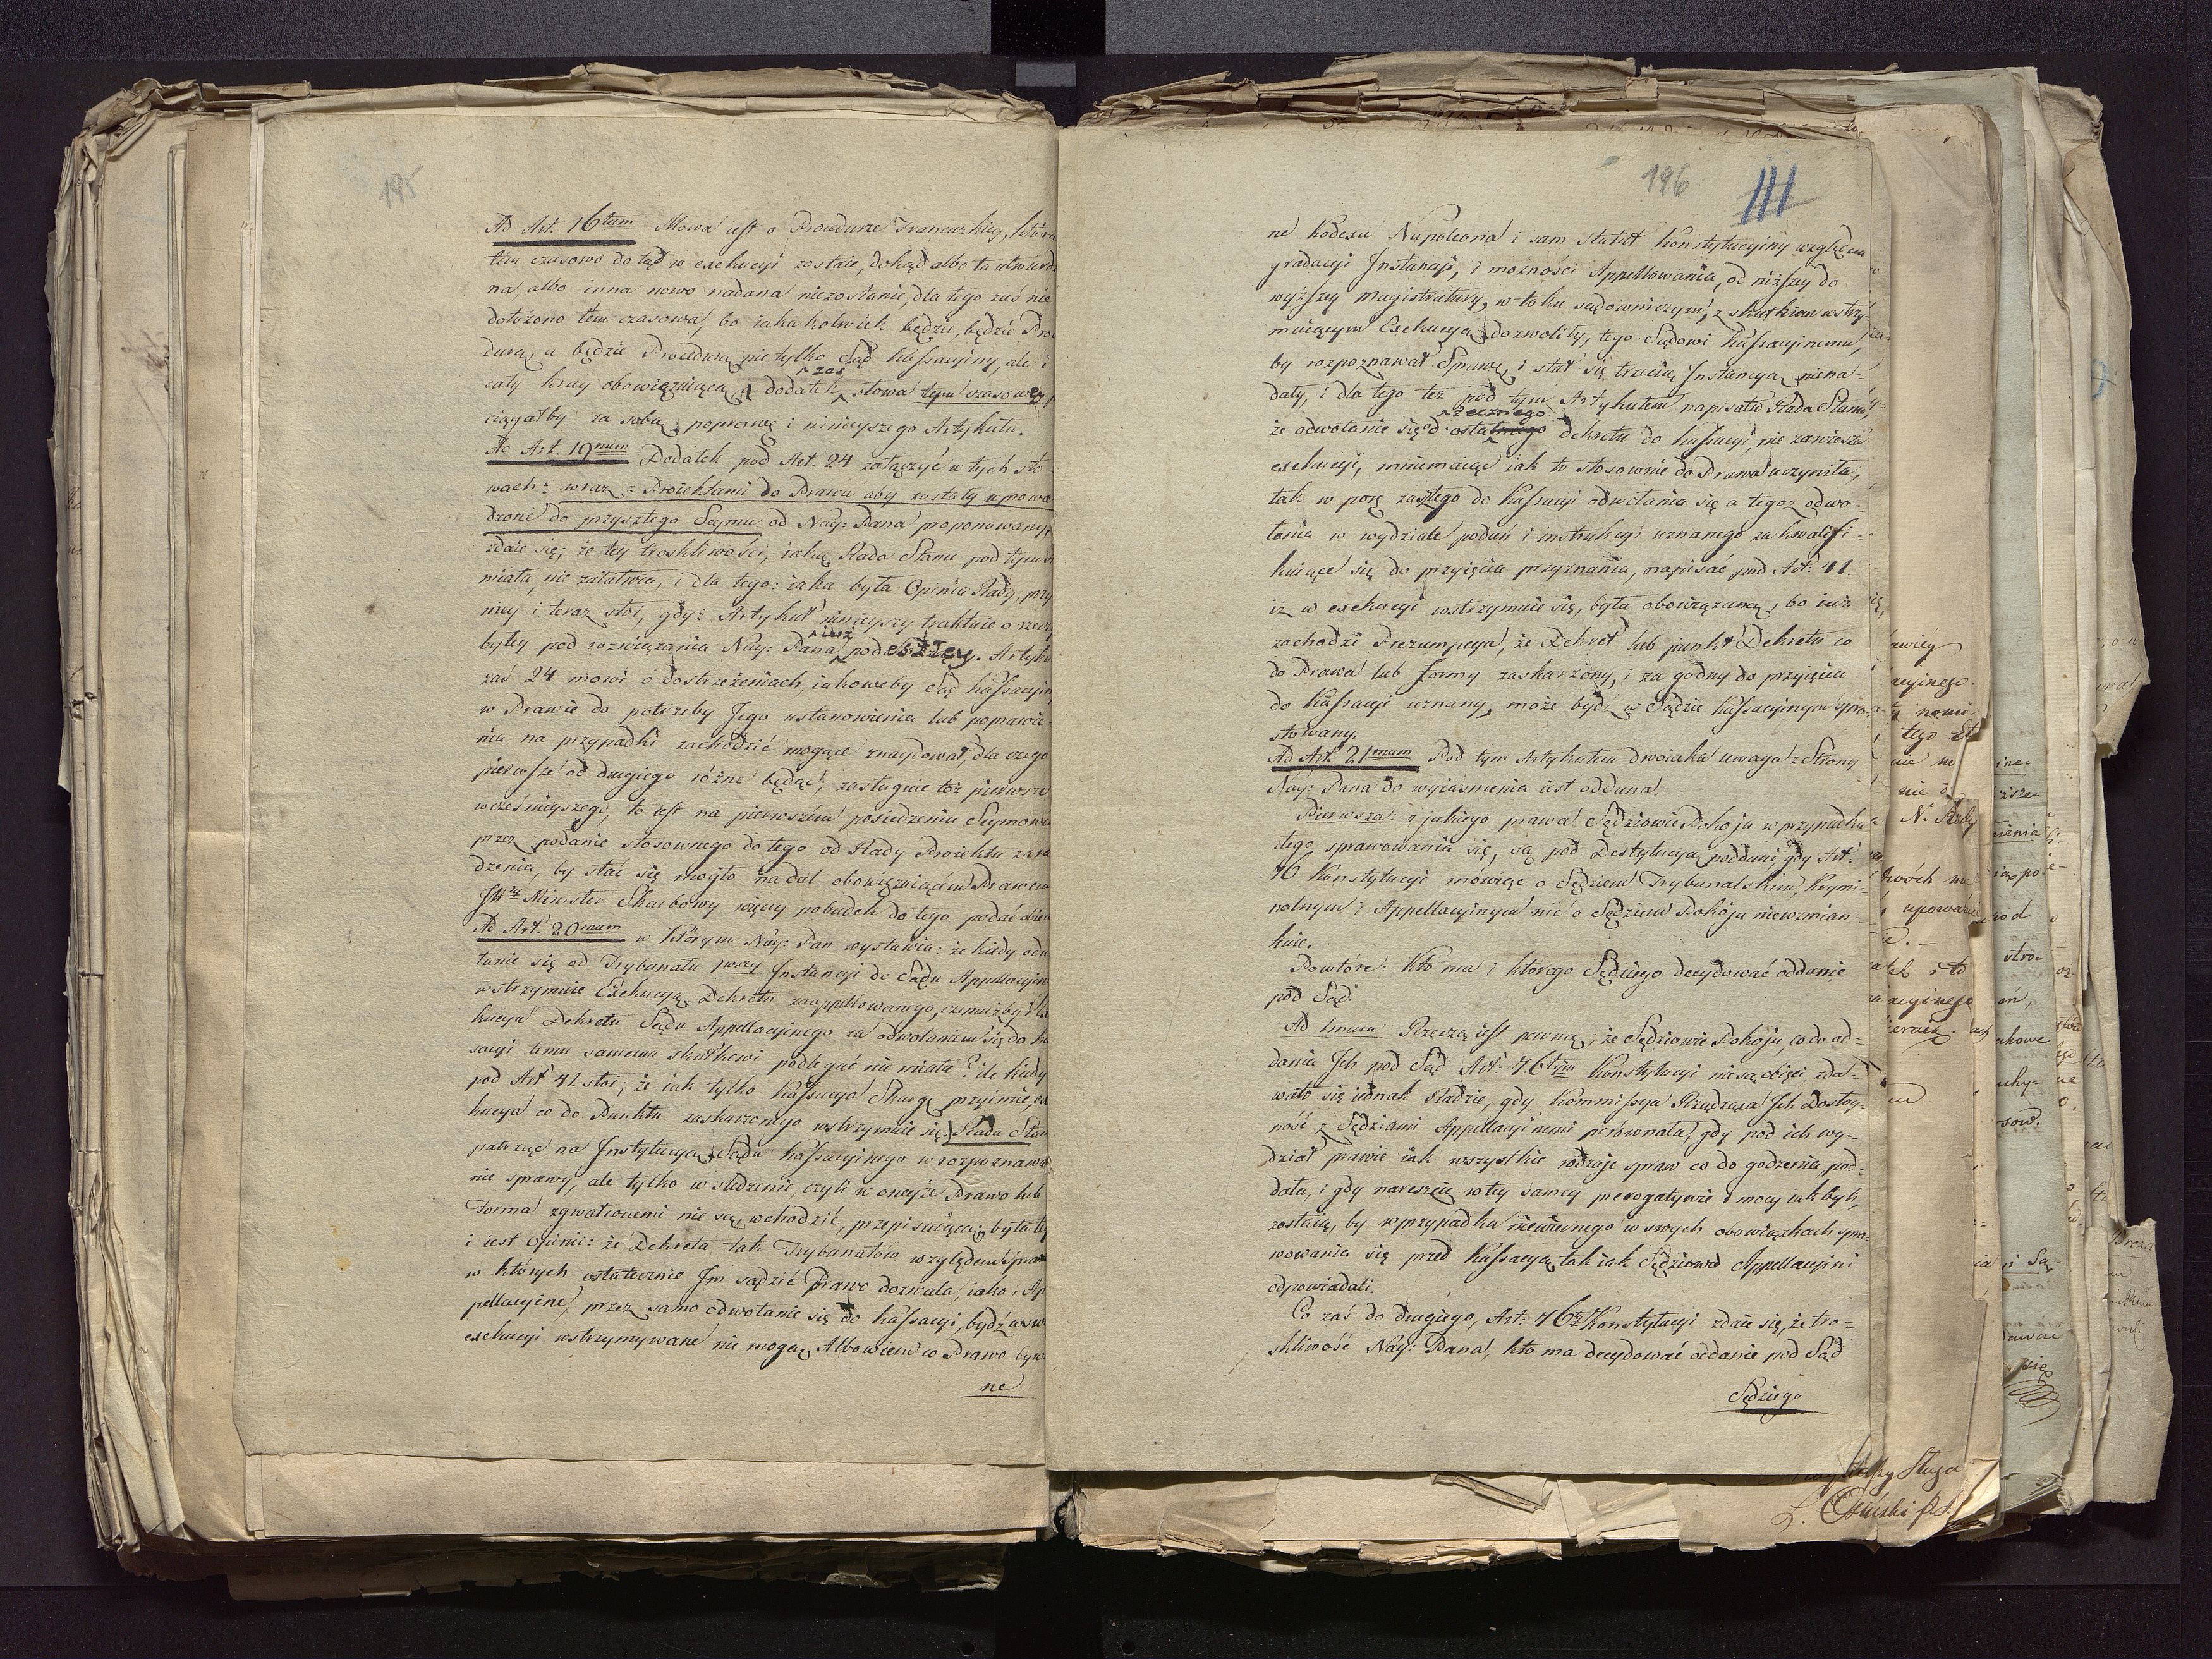 195
Ad Art. 16tum Mowa iest o Procedurze Francuzkiey, która
tém czasowo do tąd w exekucyi zostaie, dokąd albo ta utwierd
na, albo inna nowo nadana niezostanie, dla tego zaś nie
dołożono tém czasowa, bo iakakolwiek będzie, będzie Pro
durą, a będzie Procedurą nie tylko Sąd Kassacyiny, ale i
cały kray obowiązuiącą, dodatek zaś słowa tym czasowey
ciągałby za sobą poprawę i ninieyszego Artykułu.
Ad Art. 19num Dodatek pod Art. 24 załączyć w tych sło
wach: wraz z Proiektami do Prawa aby zostały upowa
dzone do przyszłego Seymu od Nay: Pana proponowany,
zdaie się; że tey troskliwości, iaką Rada Stanu pod tym
miała, nie załatwia, i dla tego: iaka była Opinia Rady, przy
niey i teraz stoi, gdyż Artykuł ninieyszy traktuie o rzeczy
byłey pod rozwiązania Nay: Pana iuż podeszłey. Artyku
zaś 24 mówi o dostrzeżeniach, iakoweby Sąd Kassacyin
w Prawie do potrzeby Jego ustanowienia lub poprawie
nia na przypadki zachodzić mogące znaydował, dla czego
pierwsze od drugiego różne będąc, zasługuie też pierwsze
wcześnieyszego, to iest na pierwszém posiedzeniu Seymowe
przez podanie stosownego do tego od Rady Proiektu zara
dzenia, by stać się mogło nadal obowiązuiącém Prawem
JW Minister Skarbowy więcey pobudek do tego podać
Ad Art. 20mum w którym Nay: Pan wystawia: że kiedy odw
łanie się od Trybunału pwszy Instancyi do Sądu Appellacyin
wstrzymuie Exekucyą Dekretu zaappellowanego, czemużby Exe
kucya Dekretu Sądu Appellacyinego za odwołaniem się do Ka
sacyi temu samemu skutkowi podlegać nie miała? ile kiedy
pod Art 41. stoi; że iak tylko Kassacya Skargę przyimie, ex
kucya co do Punktu zaskarżonego wstrzymuie się. Rada Stan
patrząc na Instytucyą Sądu Kassacyinego w rozpoznawa
nie sprawy, ale tylko w śledzenie, czyli w oneyże Prawo lub
Forma zgwałconemi nie są, wchodzić, przepisuiącą, była te
i iest Opinii: że Dekreta tak Trybunałów względem Spraw
w których ostatecznie Im sądzić Prawo dozwala, iako i Ap
pellacyine, przez samo odwołanie się do Kassacyi, bydź w
exekucyi wstrzymywane nie mogą, Albowiem co Prawo Cywil
ne
196
111
ne Kodexu Napoleona i sam Statut Konstytucyiny względem
gradacyi Instancyi, i możności Appellowania, od niższey do
wyższey magistratury, w toku sądowniczym, z skutkiem wstrzy-
muiącym Exekucyą dozwoliły, tego Sądowi Kassacyinemu,
by rozpoznawał Sprawę, i stał się trzecią Instancyą niena-
dały, i dla tego też pod tym Artykułem napisała Rada Stanu,
że odwołanie się od ostatecznego dekretu do Kassacyi, nie zawiesza
exekucyi, mniemaiąc iak to stosownie do Prawa uczyniła,
tak w porę zaszłego do Kassacyi odwołania się a tegoż odwo-
łania w wydziale podań i instrukcyi uznanego za kwalifi-
kuiące się do przyięcia przyznania, napisać pod Art: 41.
iż w exekucyi wstrzymuie się, była obowiązaną, bo iuż
zachodzi Prezumpcya, że Dekret lub punkt Dekretu co
do Prawa lub formy zaskarżony, i za godny do przyięcia
do Kassacyi uznany, może bydź w Sądzie Kassacyinym spro-
stowany.
Ad Art: 21mum Pod tym Artykułem dwoiaka uwaga z Strony
Nay: Pana do wyiaśnienia iest oddana.
Pierwsza: z jakiego prawa Sędziowie Pokoju w przypadku
złego sprawowania się, są pod Destytucyą poddani, gdy Art:
76 Konstytucyi mówiąc o Sędziem Trybunalskim, Krymi-
nalnym i Appellacyinym nic o Sędziem Pokoju niewzmian-
kuie.
Powtóre: Kto ma i którego Sędziego decydować oddanie
pod Sąd.
Ad 1mum Rzeczą iest pewną, że Sędziowie Pokoju, co do od-
dania Ich pod Sąd Art: 76tym Konstytucyi niesą obięci, zda-
wało się iednak Radzie, gdy Kommissya Rządząca Ich Dostoy-
ność z Sędziami Appellacyinemi porównała, gdy pod ich wy-
dział prawie iak wszystkie rodzaje spraw co do godzenia pod-
dała, i gdy nareszcie w tey samey prerogatywie i mocy iak byli,
zostaią, by w przypadku niewiernego w swych obowiązkach spra-
wowania się przed Kassacyą tak iak Sędziowie Appellacyini
odpowiadali.
Co zaś do drugiego, Art: 76ty Konstytucyi zdaie się, że tro-
skliwość Nay: Pana, kto ma decydować oddanie pod Sąd
Sędziego
Sługa
L. Osiński